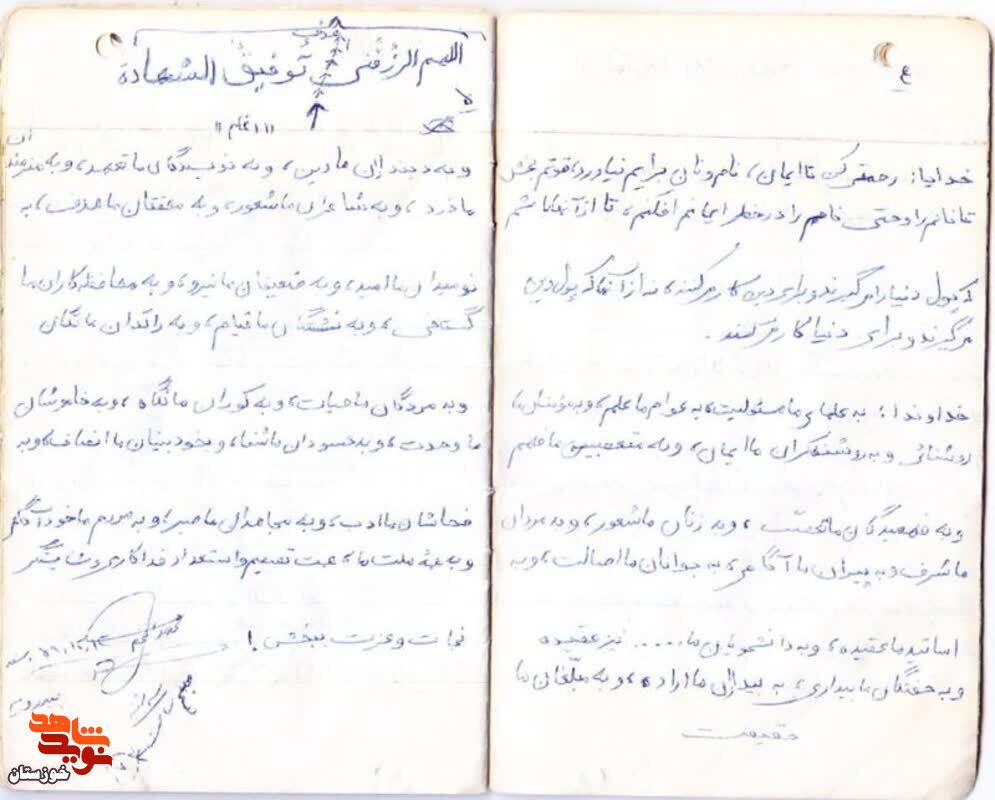 ۴
خدایا: رحمتی کن تا ایمان، نام و نان برایم نیاورد، قوتم بخش
تا نانم را و حتی نامم را در خطر ایمانم افکنم، تا از آنها باشم
که پول دنیا را میگیرند و برای دین کار میکنند، نه از آنها که پول دین
میگیرند و برای دنیا کار میکنند.
خداوندا: به علمای ما مسئولیت، به عوام ما علم، و به مؤمنان ما
روشنائی و به روشنفکران ما ایمان، و به متعصبین ما فهم
و به فهمیدگان ما تعصب، و به زنان ما شعور، و به مردان
ما شرف و به پیران ما آگاهی، به جوانان ما اصالت، و به
اساتید ما عقیده، و به دانشجویان ما..... نیز عقیده
و به خفتگان ما بیداری، به بیداران ما اراده، و به مبلّغان ما
حقیقت
هدف
اللهم الرزُقنی تُوفیقُ الشهادة
۵
و به دینداران ما دین، و به نویسندگان ما تعهد، و به هنرمندان
ما درد، و به شاعران ما شعور، و به محققان ما هدف، به
نومیدان ما امید، و به ضعیفان ما نیرو، و به محافظه‌کاران ما
گستاخی، و به نشستگان ما قیام، و به راکدان ما تکان
و به مردگان ما حیات، و به کوران ما نگاه، و به خاموشان
ما وحدت، و به حسودان ما شفا، و بخودبینان ما انصاف، و به
فحاشان ما ادب، و به مجاهدان ما صبر، و به مردم ما خودآگاهی
و به همهٔ ملت ما، همت تصمیم و استعداد فداکاری و شایستگی
نجات و عزت ببخش!
نوید شاهد
خوزستان